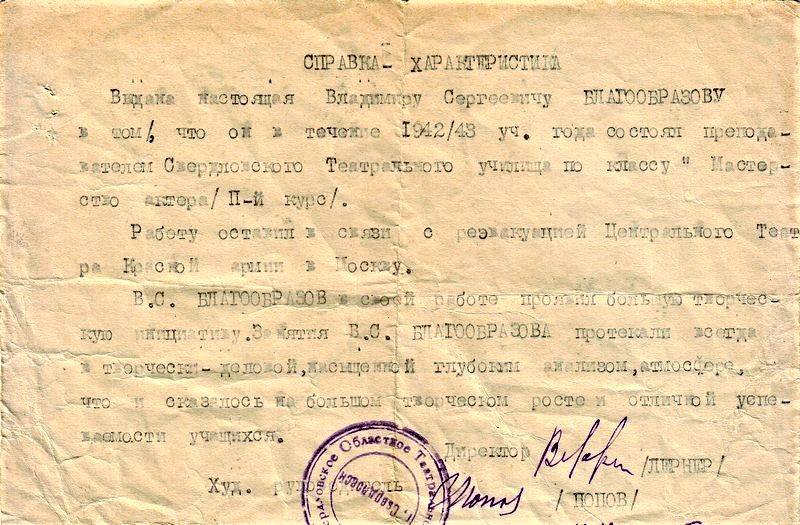 СПРАВКА- ХАРАКТЕРИСТИКА
Выдана настоящая Владимиру Сергеевичу БЛАГООБРАЗОВУ
в том/, что он в течение 1942/43 уч. года состоял препода-
вателем Свердловского Театрального училища по классу " Мастер-
ство актера/ П-й курс/.
Работу оставил в связи с реэвакуацией Центрального Теат
ра Красной армии в Москву.
В.С. БЛАГООБРАЗОВ в своей работе проявил большую творчес-
кую инициативу. Занятия В.С. БЛАГООБРАЗОВА протекали всегда
в творчески- деловой, насыщенной глубоким анализом, атмосфере,
что и сказалось на большом творческом росте и отличной успе-
ваемости учащихся.
Директор /ЛЕРНЕР/
Худ. руководитель Попов / ПОПОВ/
Областное Театральн
г. Свердловск